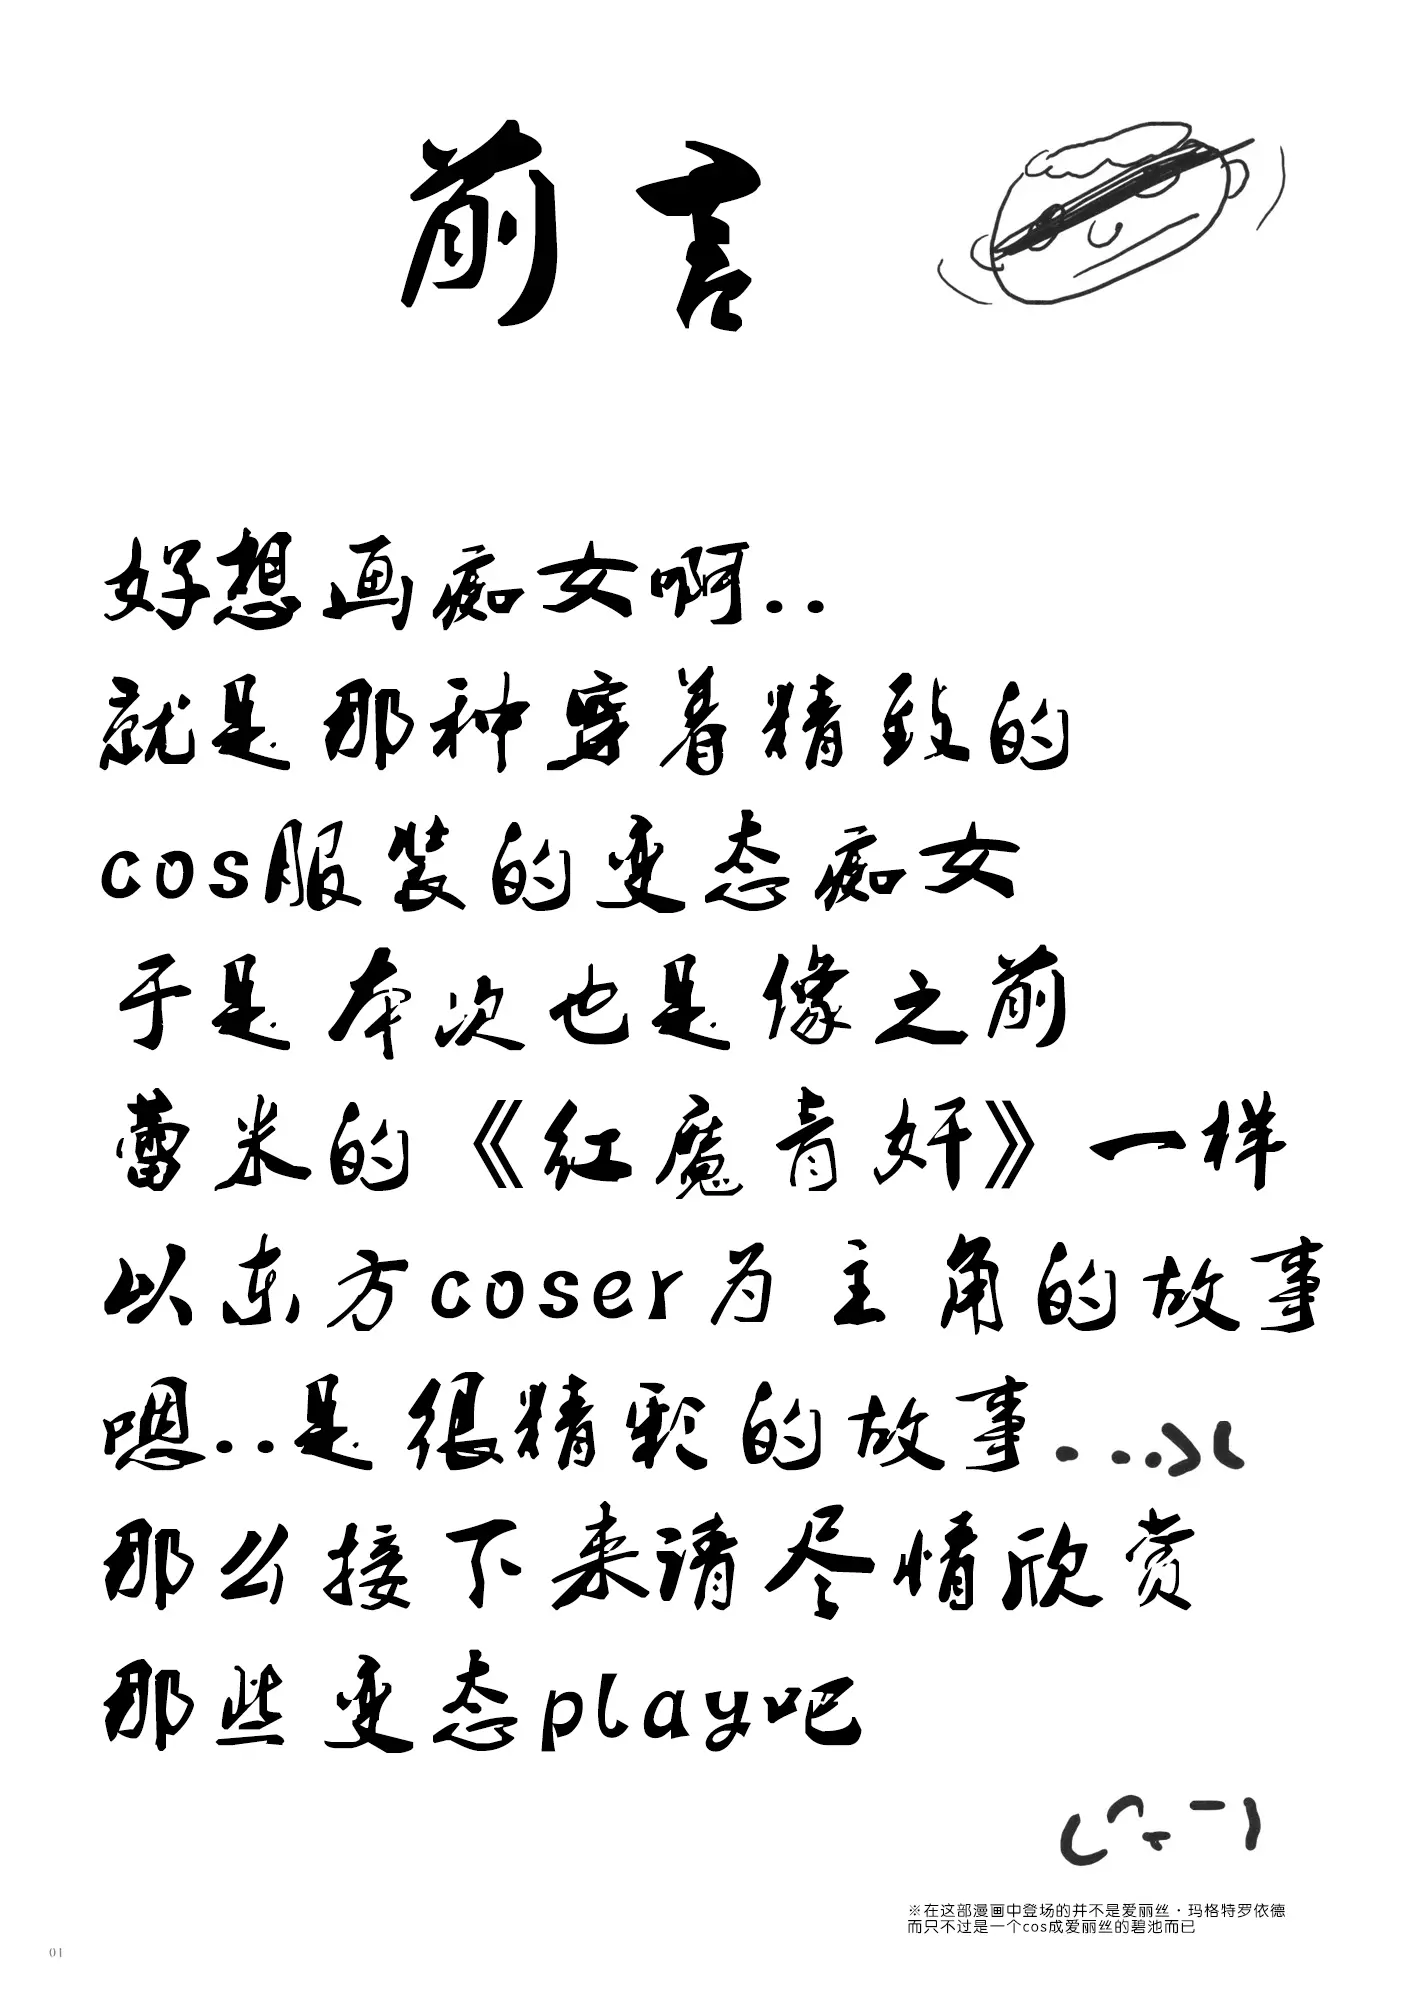 前言
好想画痴女啊..
就是那种穿着精致的
cos服装的变态痴女
于是本次也是像之前
蕾米的《红魔青奸》一样
以东方coser为主角的故事
嗯..是很精彩的故事....
那么接下来请尽情欣赏
那些变态play吧
※在这部漫画中登场的并不是爱丽丝·玛格特罗依德
而只不过是一个cos成爱丽丝的碧池而已
01